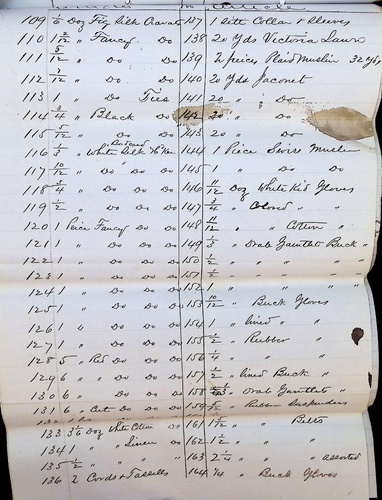 109 1/6 Doz Fcy Silk Cravats
110 1 2/12 " Fancy Do
111 5/12 " Do Do
112 3/12 " Do Do
113 1 " Do Ties
114 3/4 " Black Do
115 5/12 " Do Do
116 1/3 " White Silk H'ker
117 10/12 " Do Do Do
118 3/4 " Do Do Do
119 1/2 " Do Do Do
120 1 Peice Fancy Do Do
121 1 " Do Do Do
122 1 " Do Do Do
123 1 " Do Do Do
124 1 " Do Do Do
125 1 " Do Do Do
126 1 " Do Do Do
127 1 " Do Do Do
128 5 " Red Do Do
129 6 " " Do Do
130 6 " " Do Do
131 6 " Do Do
133 Doz White Cotton Do
134 1 " " Linen Do
135 1/2 " " Do
136 2 Cords & Tassells
137 1 Collar & Sleeves
138 20 Yds Victoria Lawn
139 2 peices Plaid Muslin 32 yds
140 20 Yds Jaconet
141 20 " Do
142 20 " Do
143 20 " Do
144 1 Piece Swiss Muslin
145 1 " Do Do
146 11/12 Doz White Kid Gloves
147 3/4 " Colored " "
148 11/12 " " Cotton "
149 " Drab Gauntlet Buck "
150 1/2 " " " "
151 1/2 " " " "
152 1 " " " "
153 10/12 " Buck Gloves
154 1 " lined " "
155 1/2 " Rubber "
156 " " "
157 1/2 " lined Buck "
158 " Drab Gauntlets "
159 " Rubber Suspenders
161 " " Belts
162 1/2 " " "
163 2 1/4 " " " assorted
164 1/4 " Buck Gloves